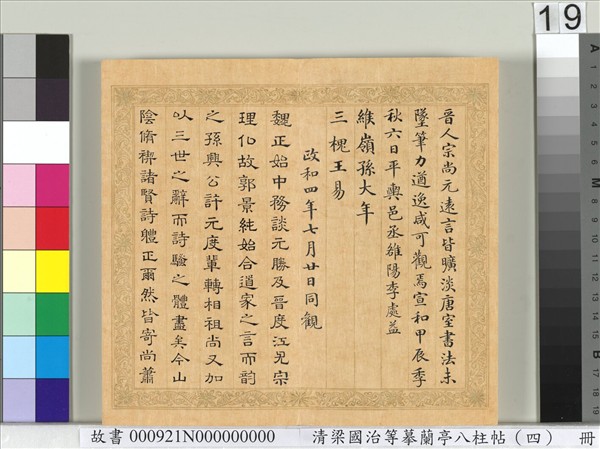 19
A
M
B
晉人宗尚元遠言皆曠淡唐室書法未
墜筆力遒逸咸可觀焉宣和甲辰季
秋六日平輿邑丞雒陽李處益
維嶺孫大年
三槐王易
政和四年七月廿日同觀
魏正始中務談元勝及晉度江尤宗
理仏故郭景純始合道家之言而韵
之孫興公許元度輩轉相祖尚又加
以三世之辭而詩騷之體盡矣今山
陰脩禊諸賢詩軆正爾然皆寄尚蕭
故書 000921N000000000 清梁國治等摹蘭亭八柱帖(四) 冊